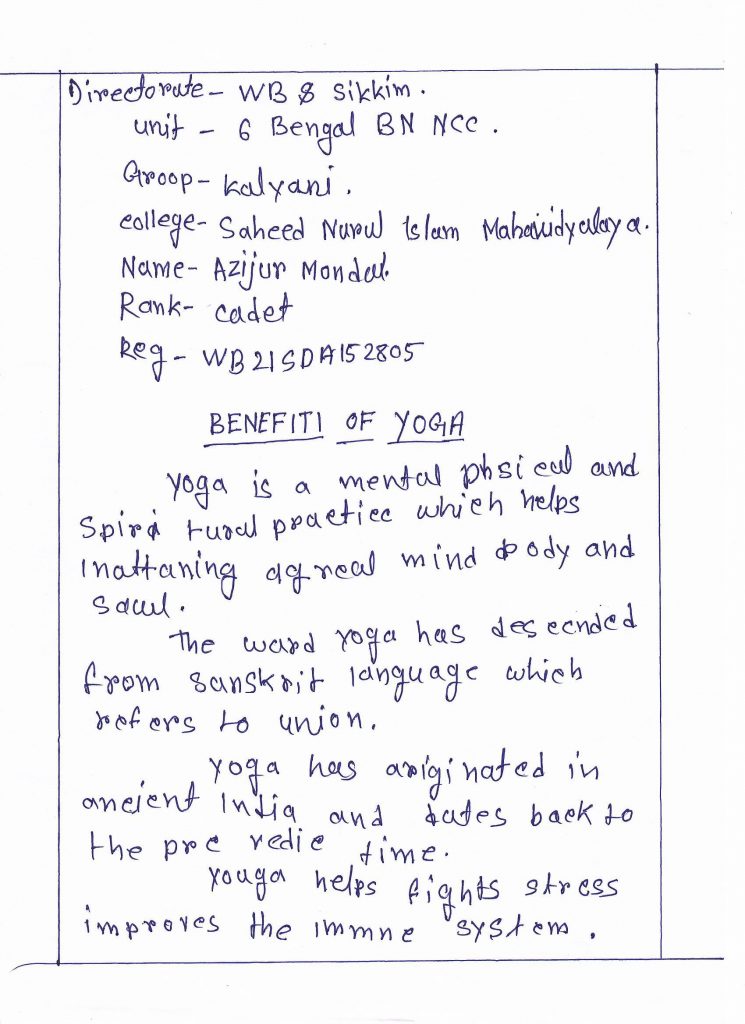 Directorate - WB & Sikkim.
unit - 6 Bengal BN NCC.
Groop - kalyani.
college - Saheed Nurul Islam Mahavidyalaya.
Name - Azijur Mondal.
Rank - cadet
Reg - WB21SDA152805
BENEFITI OF YOGA
Yoga is a mental phsical and
Spiri tural practice which helps
Inattaning agreal mind body and
saul.
The ward Yoga has descended
from sanskrit language which
refers to union.
Yoga has ariginated in
ancient India and dates back to
the pre vedic time.
Youga helps fights stress
improves the immne system.